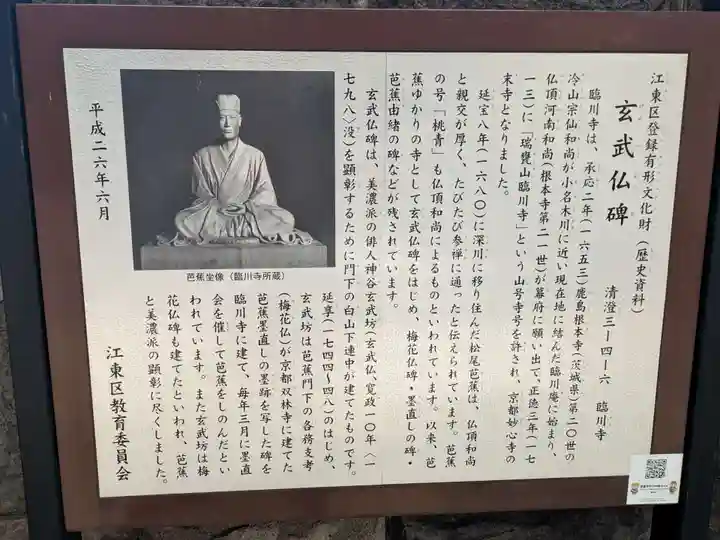 江東区登録有形文化財（歴史資料）
玄武仏碑
清澄三ー四ー六　臨川寺
臨川寺は、承応二年（一六五三）鹿島根本寺（茨城県）第二〇世の
冷山宗仙和尚が小名木川に近い現在地に結んだ臨川庵に始まり、
仏頂河南和尚（根本寺第二一世）が幕府に願い出て、正徳三年（一七
一三）に「瑞甕山臨川寺」という山号寺号を許され、京都妙心寺の
末寺となりました。
延宝八年（一六八〇）に深川に移り住んだ松尾芭蕉は、仏頂和尚
と親交が厚く、たびたび参禅に通ったと伝えられています。芭蕉
の号「桃青」も仏頂和尚によるものといわれています。以来、芭
蕉ゆかりの寺として玄武仏碑をはじめ、梅花仏碑・墨直しの碑・
芭蕉由緒の碑などが残されています。
玄武仏碑は、美濃派の俳人神谷玄武坊（玄武仏、寛政一〇年〈一
七九八〉没）を顕彰するために門下の白山下連中が建てたものです。
延享（一七四四～四八）のはじめ、
玄武坊は芭蕉門下の各務支考
（梅花仏）が京都双林寺に建てた
芭蕉墨直しの墨跡を写した碑を
臨川寺に建て、毎年三月に墨直
会を催して芭蕉をしのんだとい
われています。また玄武坊は梅
花仏碑も建てたといわれ、芭蕉
と美濃派の顕彰に尽くしました。
江東区教育委員会
芭蕉坐像（臨川寺所蔵）
平成二六年六月